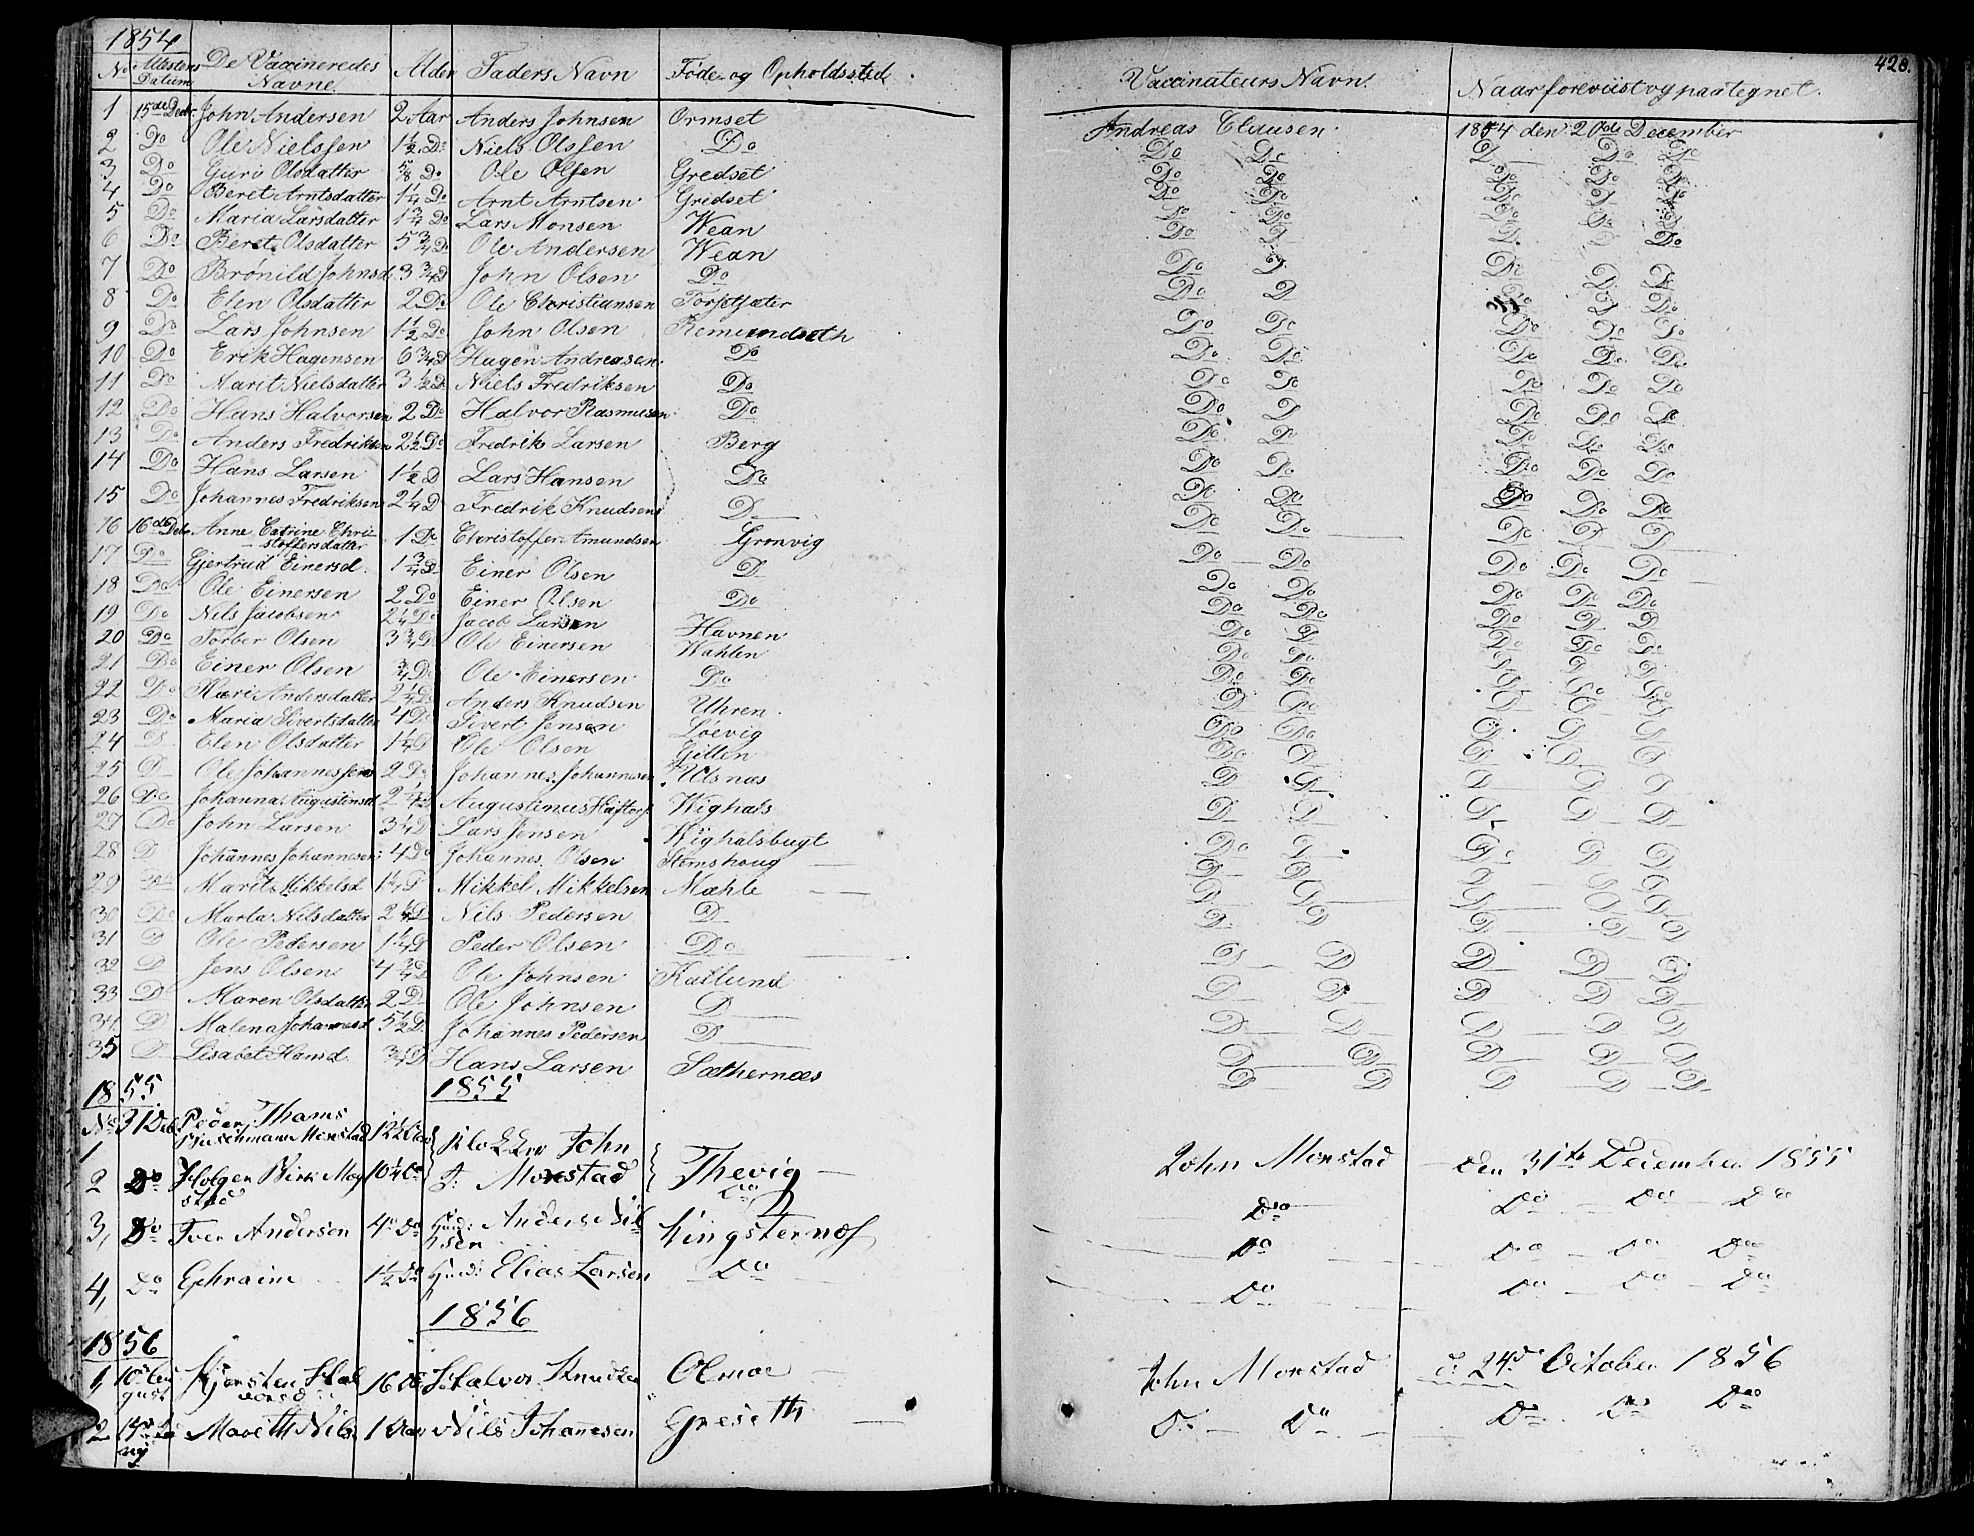 1854
No Attestens Datum De Vaccineredes Navne. Alder Faders Navn Føde- og Opholdssted. Vaccinateurs Navn. Naar foreviist og paategnet. 428.
1 15de Decbr John Andersen 2 Aar Anders Johnsen Ormset Andreas Clausen 1854 den 20de December
2 Do Ole Nielssen 1½ Do Niels Olssen Do Do Do D Do Do
3 Do Guri Olsdatter ⅝ Do Ole Olsen Gredset Do Do Do Do Do
4 Do Beret Arntsdatter 1¼ Do Arnt Arntsen Gredset Do Do Do Do Do
5 Do Maria Larsdatter 1¾ Do Lars Monsen Wean Do Do Do Do Do
6 Do Beret Olsdatter 5¾ Do Ole Andersen Wean Do D D. D Do
7 Do Brönild Johnsd. 3¾ D John Olsen Do Do D. Do Do Do
8 Do Elen Olsdatter 2 Do Ole Christiansen Forsetsæter Do D Do D Do
9 Do Lars Johnsen 1½ Do John Olsen Remundseth Do Do Do Do Do
10 Do Erik Hagensen 6¾ D Hagen Andreasen Do Do Do Do Do Do
11 Do Marit Nielsdatter 3½ D Niels Fredriksen Do Do Do Do Do Do
12 Do Hans Halvorsen 2 Do Halvor Rasmusen Do Do D Do Do Do
13 Do Anders Fredriksen 2½ Do Fredrik Larsen Berg Do Do Do Do Do
14 Do Hans Larsen 1½ D Lars Hansen Do Do Do Do Do Do
15 Do Johannes Fredriksen 2¼ D Fredrik Knudsen D Do Do Do Do Do
16 16de Decbr Anne Catrine Chri- 1 Do Christoffer Amundsen Grönvig Do Do Do D D
stoffersdatter
17 Do Gjertrud Einersd. 1¾ D Einer Olsen D Do Do Do Do Do
18 Do Ole Einersen 2 Do Einer Olsen Do Do Do Do Do Do
19 Do Nils Jacobsen 2¼ Do Jacob Larsen Havnen Do Do Do D D
20 Do Torber Olsen 3¾ D Ole Einersen Wahlen Do D Do Do Do
21 Do Einer Olsen ¾ D Ole Einersen Do Do Do D D D
22 Do Kari Andersdatter 2¼ D Anders Knudsen Uhren Do Do D Do Do
23 Do Maria Sivertsdatter 4 D Sivert Jensen Löevig D Do D D D
24 D Elen Olsdatter 1¼ D Ole Olsen Gillen Do Do D D D
25 D Ole Johannesjens 2 Do Johannes Johannesen Ulsnæs Do D D D D
26 Do Johanna Augustinsd 2½ D Augustinus Haftors Wighals D D D D D
27 Do John Larsen 3¼ D Lars Jensen Wighalsbugt D D D D D
28 D Johannes Johannesen 4 Do Johannes Olsen Stemshoug Do D Do D D
29 Do Marit Mikkelsd 1¼ D Mikkel Mikkelsen Mæhle D D D D D
30 Do Marta Nilsdatter 2¼ D Nils Pedersen D D D D D D
31 D Ole Pedersen 1¼ D Peder Olsen Do D D D D D
32 D Jens Olsen 4¾ D Ole Johnsen Katlund D D D D D
33 D Maren Olsdatter 2 D Ole Johnsen D D D D D D
34 D Malena Johannesd 5½ D Johannes Pedersen D D D D D D
35 D Lisabet Hansd. ¾ D Hans Larsen Sæthernæs D D D D D
1855 1855
No 1 31 Decb Peder Thams 12½ Aar Klokker John
Monstad
2 Do Holger Birk Mon 10¼ Do J. Monstad Thevig John Monstad den 31te December 1855
stad Do Do Do Do Do
3, Do Iver Anderson 4 Do Huusm: Anders Nil Kingsternæs Do Do Do Do
hsen
4, Do Ephraim 1½ Do Huusm: Elias Larsen Do Do Do Do Do
1856
1856
1, 10 Au Kjersten Hal 16 Do Halvor Knudsen Olmoe John Monstad d: 24de October 1856
gust vorsd
2 14 Marith Nils. 1 Aar Nils Johannesen Greseth Do Do Do Do Do